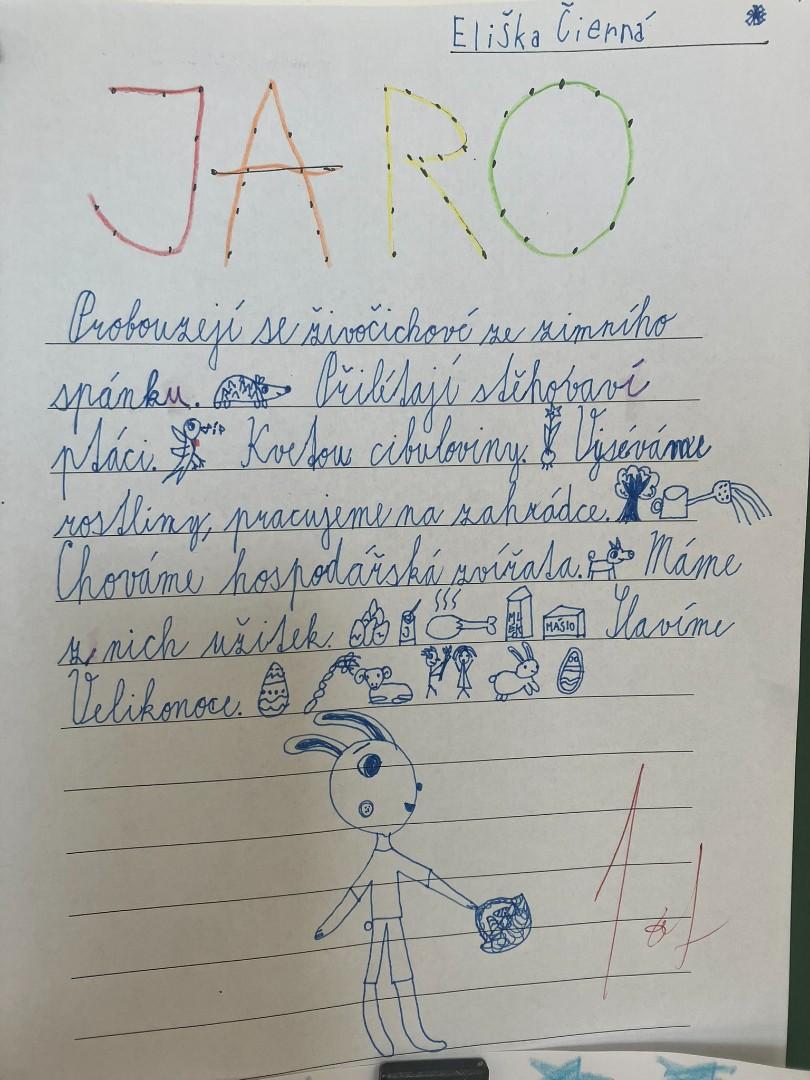 Eliška Čierná
JARO
Probouzejí se živočichové ze zimního
spánku. Přilétají stěhovaví
ptáci. Kvetou cibuloviny. Vyséváme
rostliny, pracujeme na zahrádce.
Chováme hospodářská zvířata. Máme
z nich užitek. J MLÉKO MÁSLO Slavíme
Velikonoce.
1